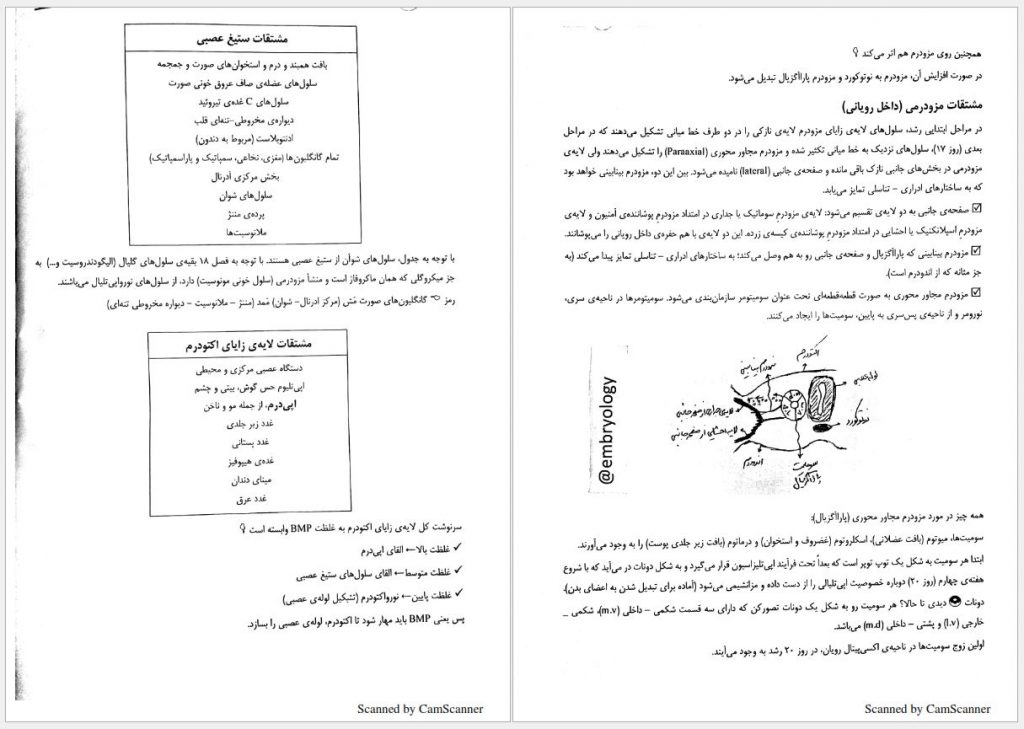 مشتقات ستیغ عصبی
بافت همبند و درم و استخوان‌های صورت و جمجمه
سلول‌های عضله‌ی صاف عروق خونی صورت
سلول‌های C غده‌ی تیروئید
دیواره‌ی مخروطی-تنه‌ای قلب
ادنتوبلاست (مربوط به دندون)
تمام گانگلیون‌ها (مغزی، نخاعی، سمپاتیک و پاراسمپاتیک)
بخش مرکزی آدرنال
سلول‌های شوان
پرده‌ی مننژ
ملانوسیت‌ها
با توجه به جدول، سلول‌های شوآن از ستیغ عصبی هستند. با توجه به فصل ۱۸ بقیه‌ی سلول‌های گلیال (الیگودندروسیت و...) به
جز میکروگلی که همان ماکروفاژ است و منشأ مزودرمی (سلول خونی مونوسیت) دارد، از سلول‌های نورواپی‌تلیال می‌باشند.
رمز گانگلیون‌های صورت مَش (مرکز ادرنال- شوان) مَمد (مننژ - ملانوسیت - دیواره مخروطی تنه‌ای)
مشتقات لایه‌ی زایای اکتودرم
دستگاه عصبی مرکزی و محیطی
اپی‌تلیوم حس گوش، بینی و چشم
اپی‌درم، از جمله مو و ناخن
غدد زیر جلدی
غدد پستانی
غده‌ی هیپوفیز
مینای دندان
غدد عرق
سرنوشت کل لایه‌ی زایای اکتودرم به غلظت BMP وابسته است
✓ غلظت بالا← القای اپی‌درم
✓ غلظت متوسط← القای سلول‌های ستیغ عصبی
✓ غلظت پایین← نورواکتودرم (تشکیل لوله‌ی عصبی)
پس یعنی BMP باید مهار شود تا اکتودرم، لوله‌ی عصبی را بسازد.
Scanned by CamScanner
همچنین روی مزودرم هم اثر می‌کند
در صورت افزایش آن، مزودرم به نوتوکورد و مزودرم پاراآگزیال تبدیل می‌شود.
مشتقات مزودرمی (داخل رویانی)
در مراحل ابتدایی رشد، سلول‌های لایه‌ی زایای مزودرم لایه‌ی نازکی را در دو طرف خط میانی تشکیل می‌دهند که در مراحل
بعدی (روز ۱۷)، سلول‌های نزدیک به خط میانی تکثیر شده و مزودرم مجاور محوری (Paraaxial) را تشکیل می‌دهند ولی لایه‌ی
مزودرمی در بخش‌های جانبی نازک باقی مانده و صفحه‌ی جانبی (lateral) نامیده می‌شود. بین این دو، مزودرم بینابینی خواهد بود
که به ساختارهای ادراری - تناسلی تمایز می‌یابد.
☑ صفحه‌ی جانبی به دو لایه‌ی تقسیم می‌شود: لایه‌ی مزودرم سوماتیک یا جداری در امتداد مزودرم پوشاننده‌ی آمنیون و لایه‌ی
مزودرم اسپلانکنیک یا احشایی در امتداد مزودرم پوشاننده‌ی کیسه‌ی زرده. این دو لایه‌ی با هم حفره‌ی داخل رویانی را می‌پوشانند.
☑ مزودرم بینابینی که پاراآگزیال و صفحه‌ی جانبی رو به هم وصل می‌کند؛ به ساختارهای ادراری - تناسلی تمایز پیدا می‌کند (به
جز مثانه که از اندودرم است).
☑ مزودرم مجاور محوری به صورت قطعه‌قطعه‌ای تحت عنوان سومیتومر سازمان‌بندی می‌شود. سومیتومرها در ناحیه‌ی سری،
نورومر و از ناحیه‌ی پس‌سری به پایین، سومیت‌ها را ایجاد می‌کنند.
@embryology
اکتودرم
مزودرم بینابینی
لوله عصبی
لایه‌ی جداری از صفحه جانبی
لایه احشایی از صفحه جانبی
نوتوکورد
اندودرم
سومیت
پاراآگزیال
همه چیز در مورد مزودرم مجاور محوری (پاراآگزیال):
سومیت‌ها، میوتوم (بافت عضلانی)، اسکلروتوم (غضروف و استخوان) و درماتوم (بافت زیر جلدی پوست) را به وجود می‌آورند.
ابتدا هر سومیت به شکل یک توپ توپر است که بعداً تحت فرآیند اپی‌تلیزاسیون قرار می‌گیرد و به شکل دونات در می‌آید که با شروع
هفته‌ی چهارم (روز ۲۰) دوباره خصوصیت اپی‌تلیالی را از دست داده و مزانشیمی می‌شود (آماده برای تبدیل شدن به اعضای بدن).
دونات دیدی تا حالا؟ هر سومیت رو به شکل یک دونات تصورکن که دارای سه قسمت شکمی - داخلی (m.v)، شکمی _
خارجی (l.v) و پشتی - داخلی (m.d) می‌باشد.
اولین زوج سومیت‌ها در ناحیه‌ی اکسی‌پیتال رویان، در روز ۲۰ رشد به وجود می‌آیند.
Scanned by CamScanner